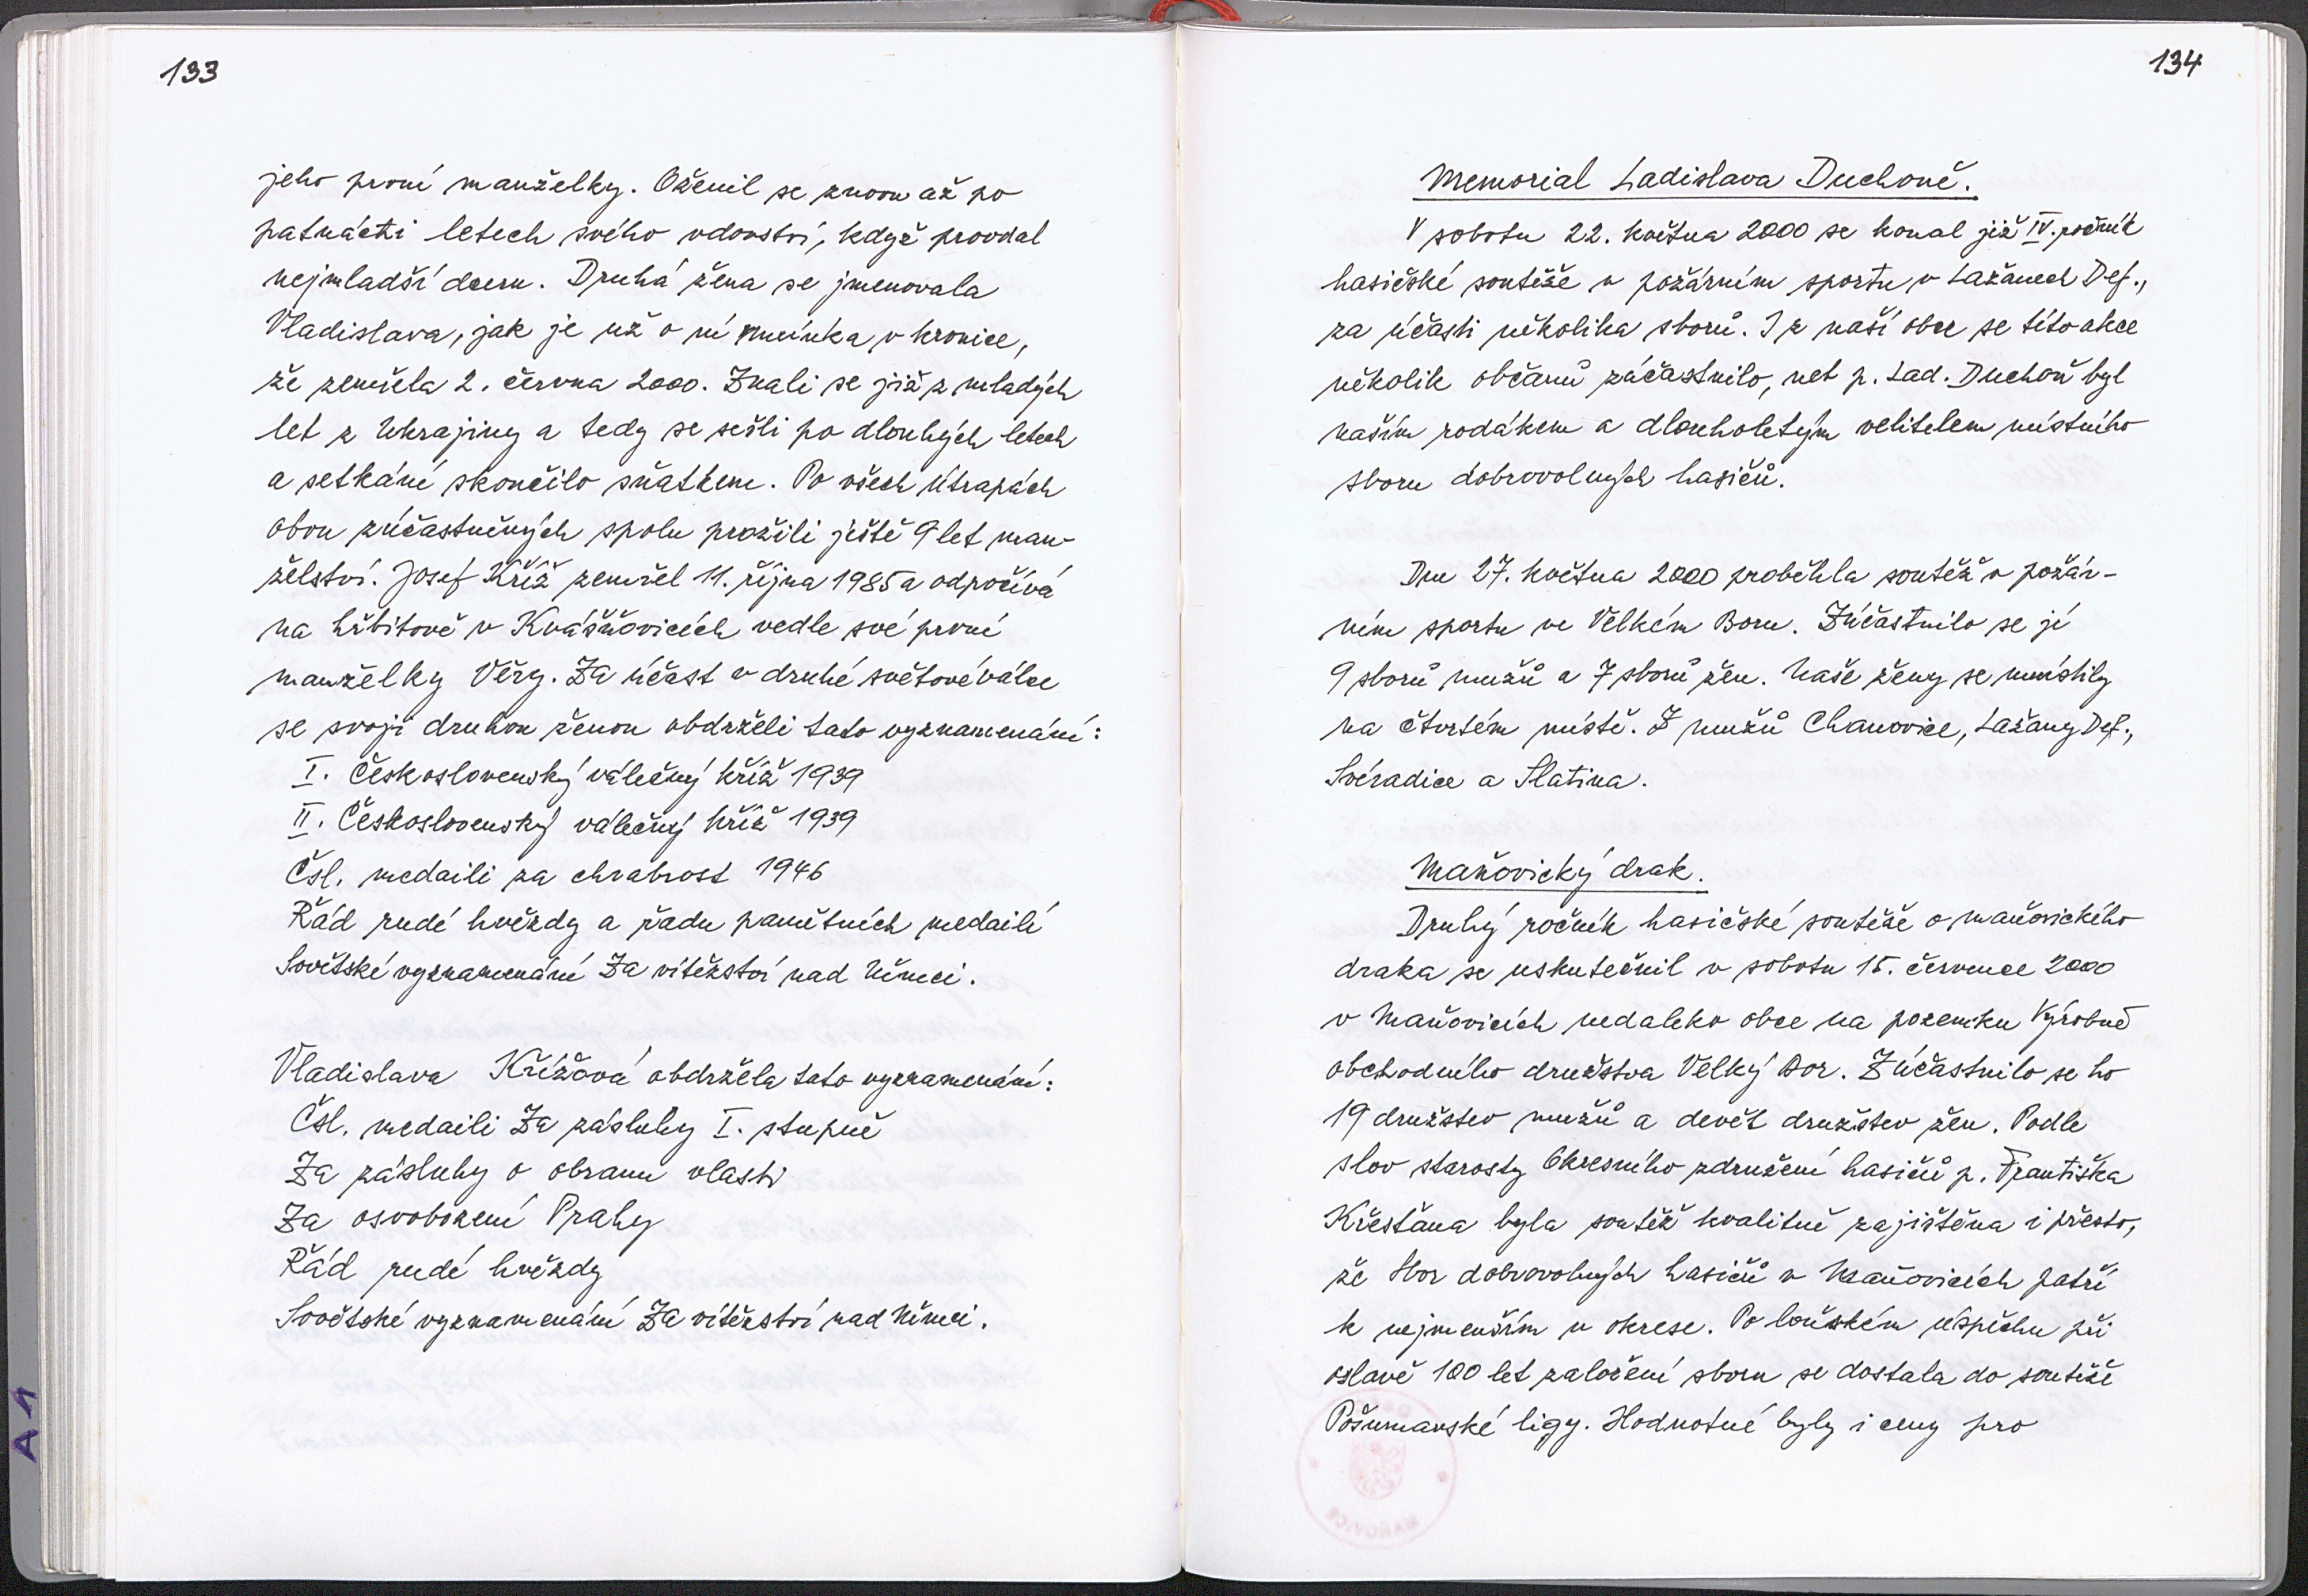 133
jeho první manželky. Oženil se znovu až po
patnácti letech svého vdovství, když provdal
nejmladší dceru. Druhá žena se jmenovala
Vladislava, jak je už o ní zmínka v kronice,
že zemřela 2. června 2000. Znali se již z mladých
let z Ukrajiny a tedy se sešli po dlouhých letech
a setkání skončilo sňatkem. Po všech útrapách
obou zúčastněných spolu prožili ještě 9 let man-
želství. Josef Kříž zemřel 11. října 1985 a odpočívá
na hřbitově v Kvášňovicích vedle své první
manželky Věry. Za účast v druhé světové válce
se svojí druhou ženou obdrželi tato vyznamenání:
I. Československý válečný kříž 1939
II. Československý válečný kříž 1939
Čsl. medaili za chrabrost 1946
Řád rudé hvězdy a řadu pamětních medailí
Sovětské vyznamenání Za vítězství nad Němci.
Vladislava Křížová obdržela tato vyznamenání:
Čsl. medaili Za zásluhy I. stupně
Za zásluhy o obranu vlasti
Za osvobození Prahy
Řád rudé hvězdy
Sovětské vyznamenání Za vítězství nad Němci.
A 1
134
Memorial Ladislava Duchoně.
V sobotu 22. května 2000 se konal již IV. ročník
hasičské soutěže v požárním sportu v Lažanech Def.,
za účasti několika sborů. I z naší obce se této akce
několik občanů zúčastnilo, neť p. Lad. Duchoň byl
naším rodákem a dlouholetým velitelem místního
sboru dobrovolných hasičů.
Dne 27. května 2000 proběhla soutěž v požár-
ním sportu ve Velkém Boru. Zúčastnilo se jí
9 sborů mužů a 7 sborů žen. Naše ženy se umístily
na čtvrtém místě. Z mužů Chanovice, Lažany Def.,
Svéradice a Slatina.
Maňovický drak.
Druhý ročník hasičské soutěže o maňovického
draka se uskutečnil v sobotu 15. července 2000
v Maňovicích nedaleko obce na pozemku Výrobně
obchodního družstva Velký Bor. Zúčastnilo se ho
19 družstev mužů a devět družstev žen. Podle
slov starosty Okresního združení hasičů p. Františka
Křesťana byla soutěž kvalitně zajištěna i přesto,
že Sbor dobrovolných hasičů v Maňovicích patří
k nejmenším v okrese. Po loňském úspěchu při
oslavě 100 let založení sboru se dostala do soutěže
Pošumavské ligy. Hodnotné byly i ceny pro